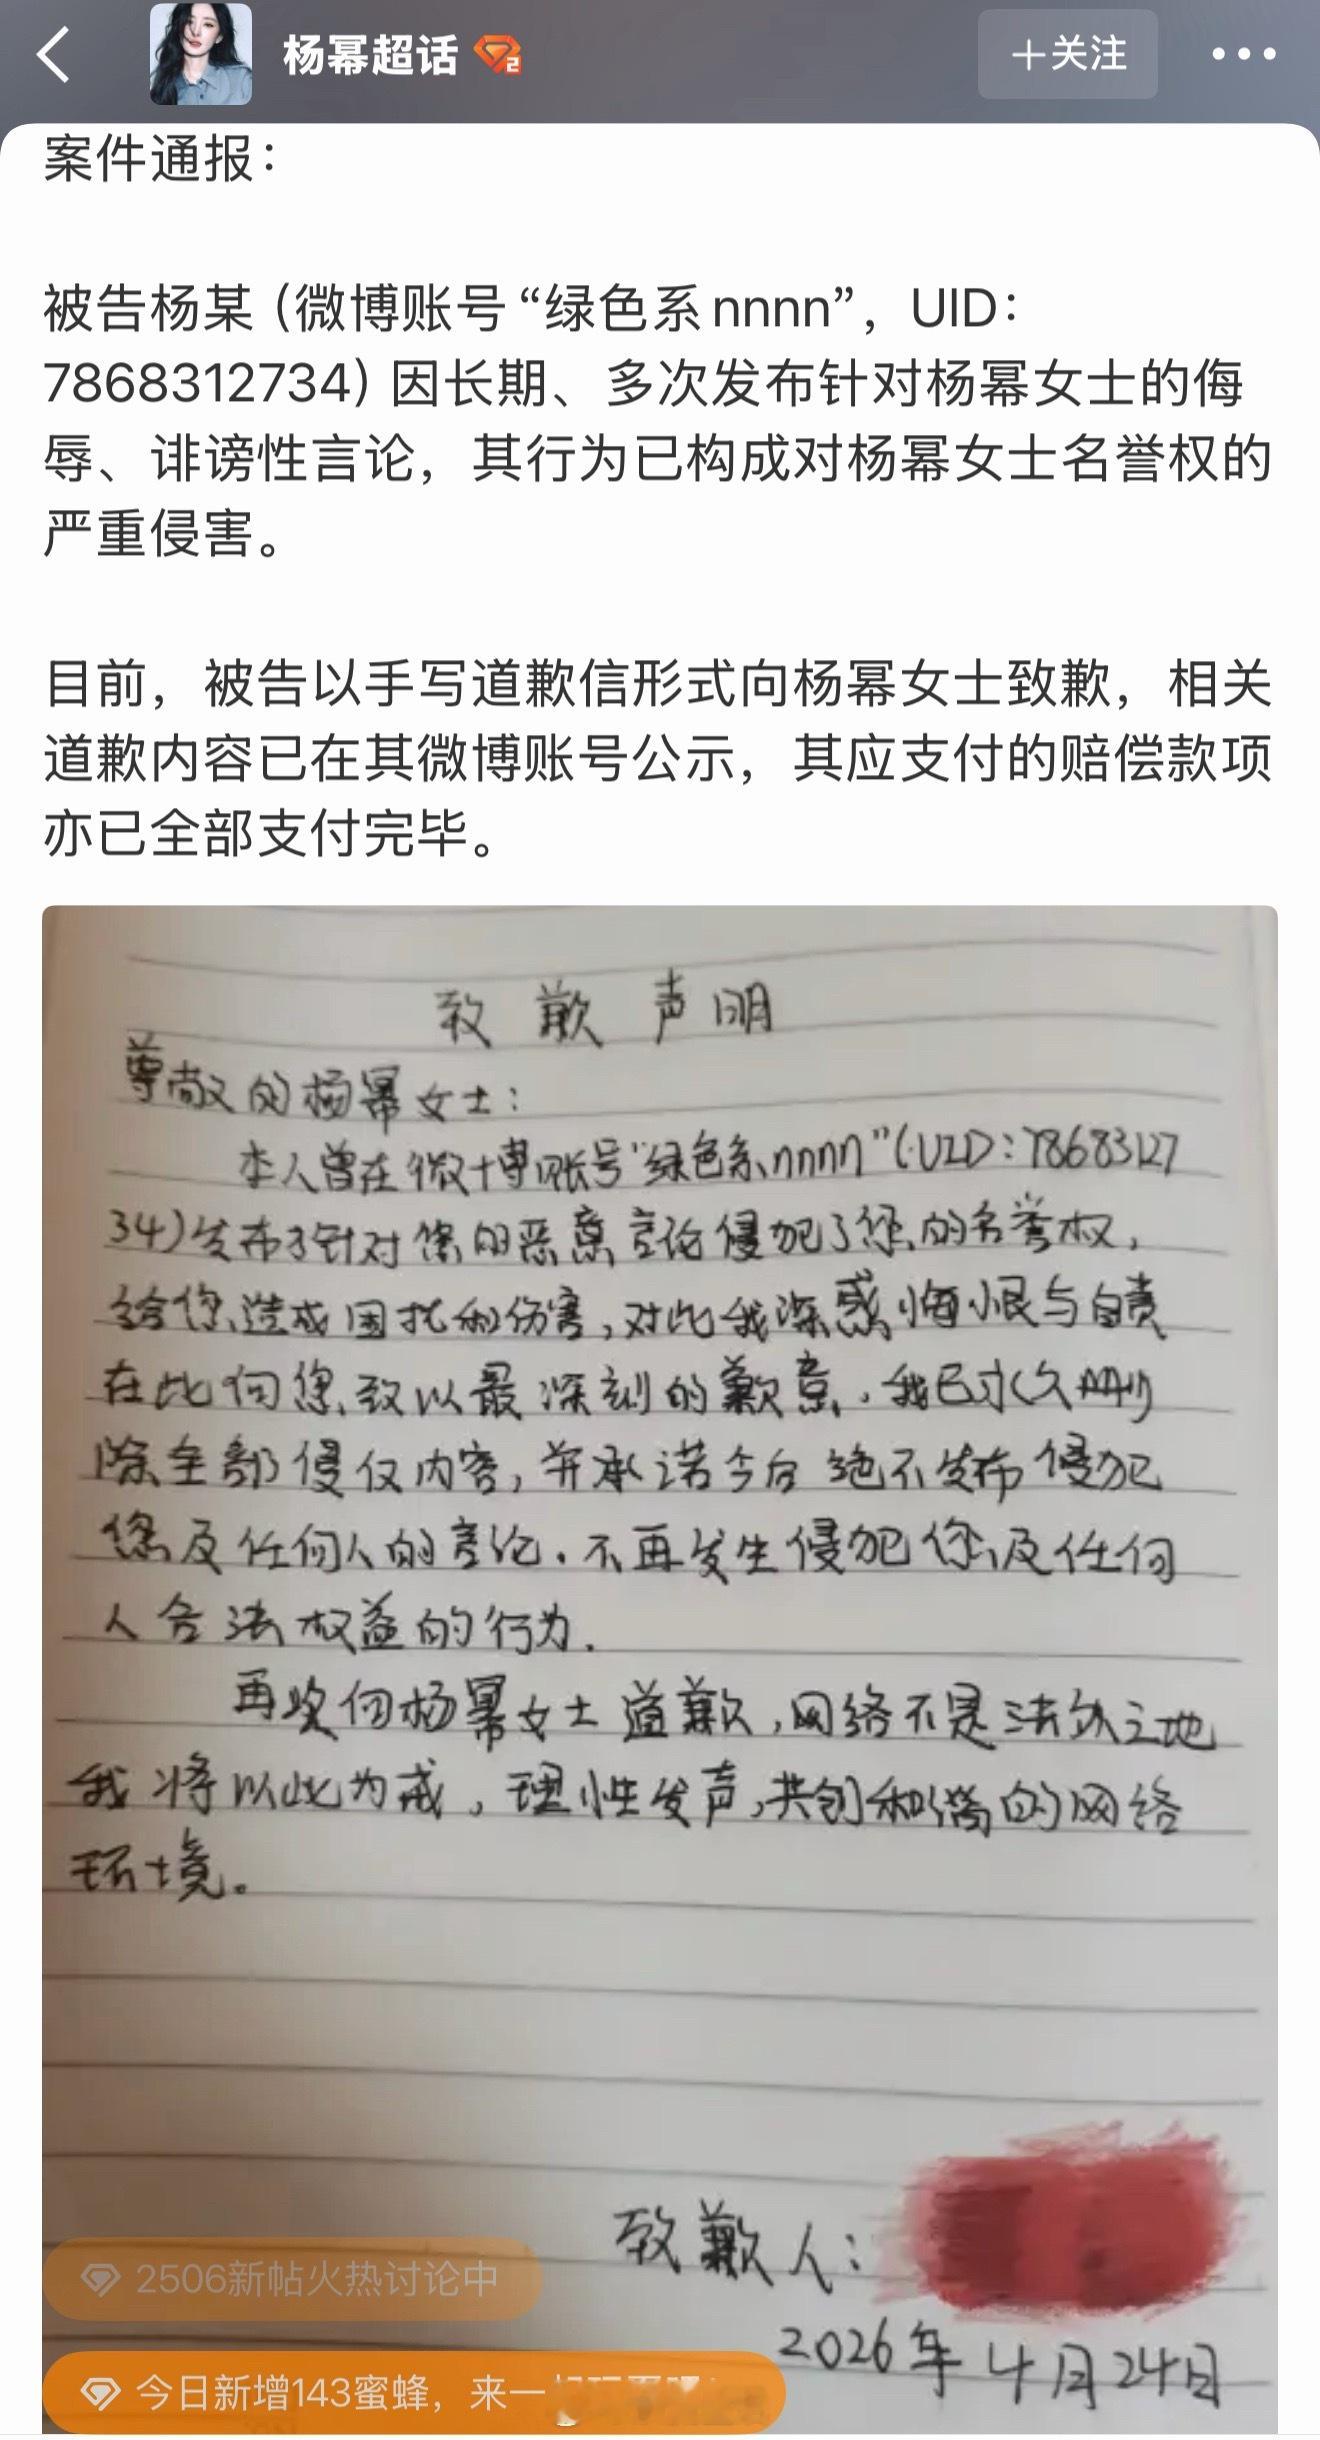 杨幂超话
2
+关注
案件通报：
被告杨某（微博账号“绿色系nnnn”，UID：
7868312734）因长期、多次发布针对杨幂女士的侮
辱、诽谤性言论，其行为已构成对杨幂女士名誉权的
严重侵害。
目前，被告以手写道歉信形式向杨幂女士致歉，相关
道歉内容已在其微博账号公示，其应支付的赔偿款项
亦已全部支付完毕。
致歉声明
尊敬的杨幂女士：
本人曾在微博账号“绿色系nnnn”（UID：78683127
34）发布了针对您的恶意言论侵犯了您的名誉权，
给您造成困扰和伤害，对此我深感悔恨与自责
在此向您致以最深刻的歉意。我已永久删
除全部侵权内容，并承诺今后绝不发布侵犯
您及任何人的言论。不再发生侵犯您及任何
人合法权益的行为.
再次向杨幂女士道歉，网络不是法外之地
我将以此为戒，理性发声，共创和谐的网络
环境。
致歉人：
2026年4月24日
2506新帖火热讨论中
今日新增143蜜蜂，来一